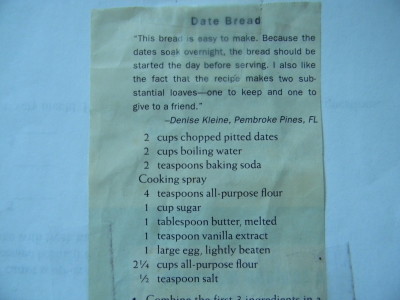 Date Bread
"This bread is easy to make. Because the
dates soak overnight, the bread should be
started the day before serving. I also like
the fact that the recipe makes two sub-
stantial loaves—one to keep and one to
give to a friend."
–Denise Kleine, Pembroke Pines, FL
2 cups chopped pitted dates
2 cups boiling water
2 teaspoons baking soda
Cooking spray
4 teaspoons all-purpose flour
1 cup sugar
1 tablespoon butter, melted
1 teaspoon vanilla extract
1 large egg, lightly beaten
2¼ cups all-purpose flour
½ teaspoon salt
Combine the first 3 ingredients in a